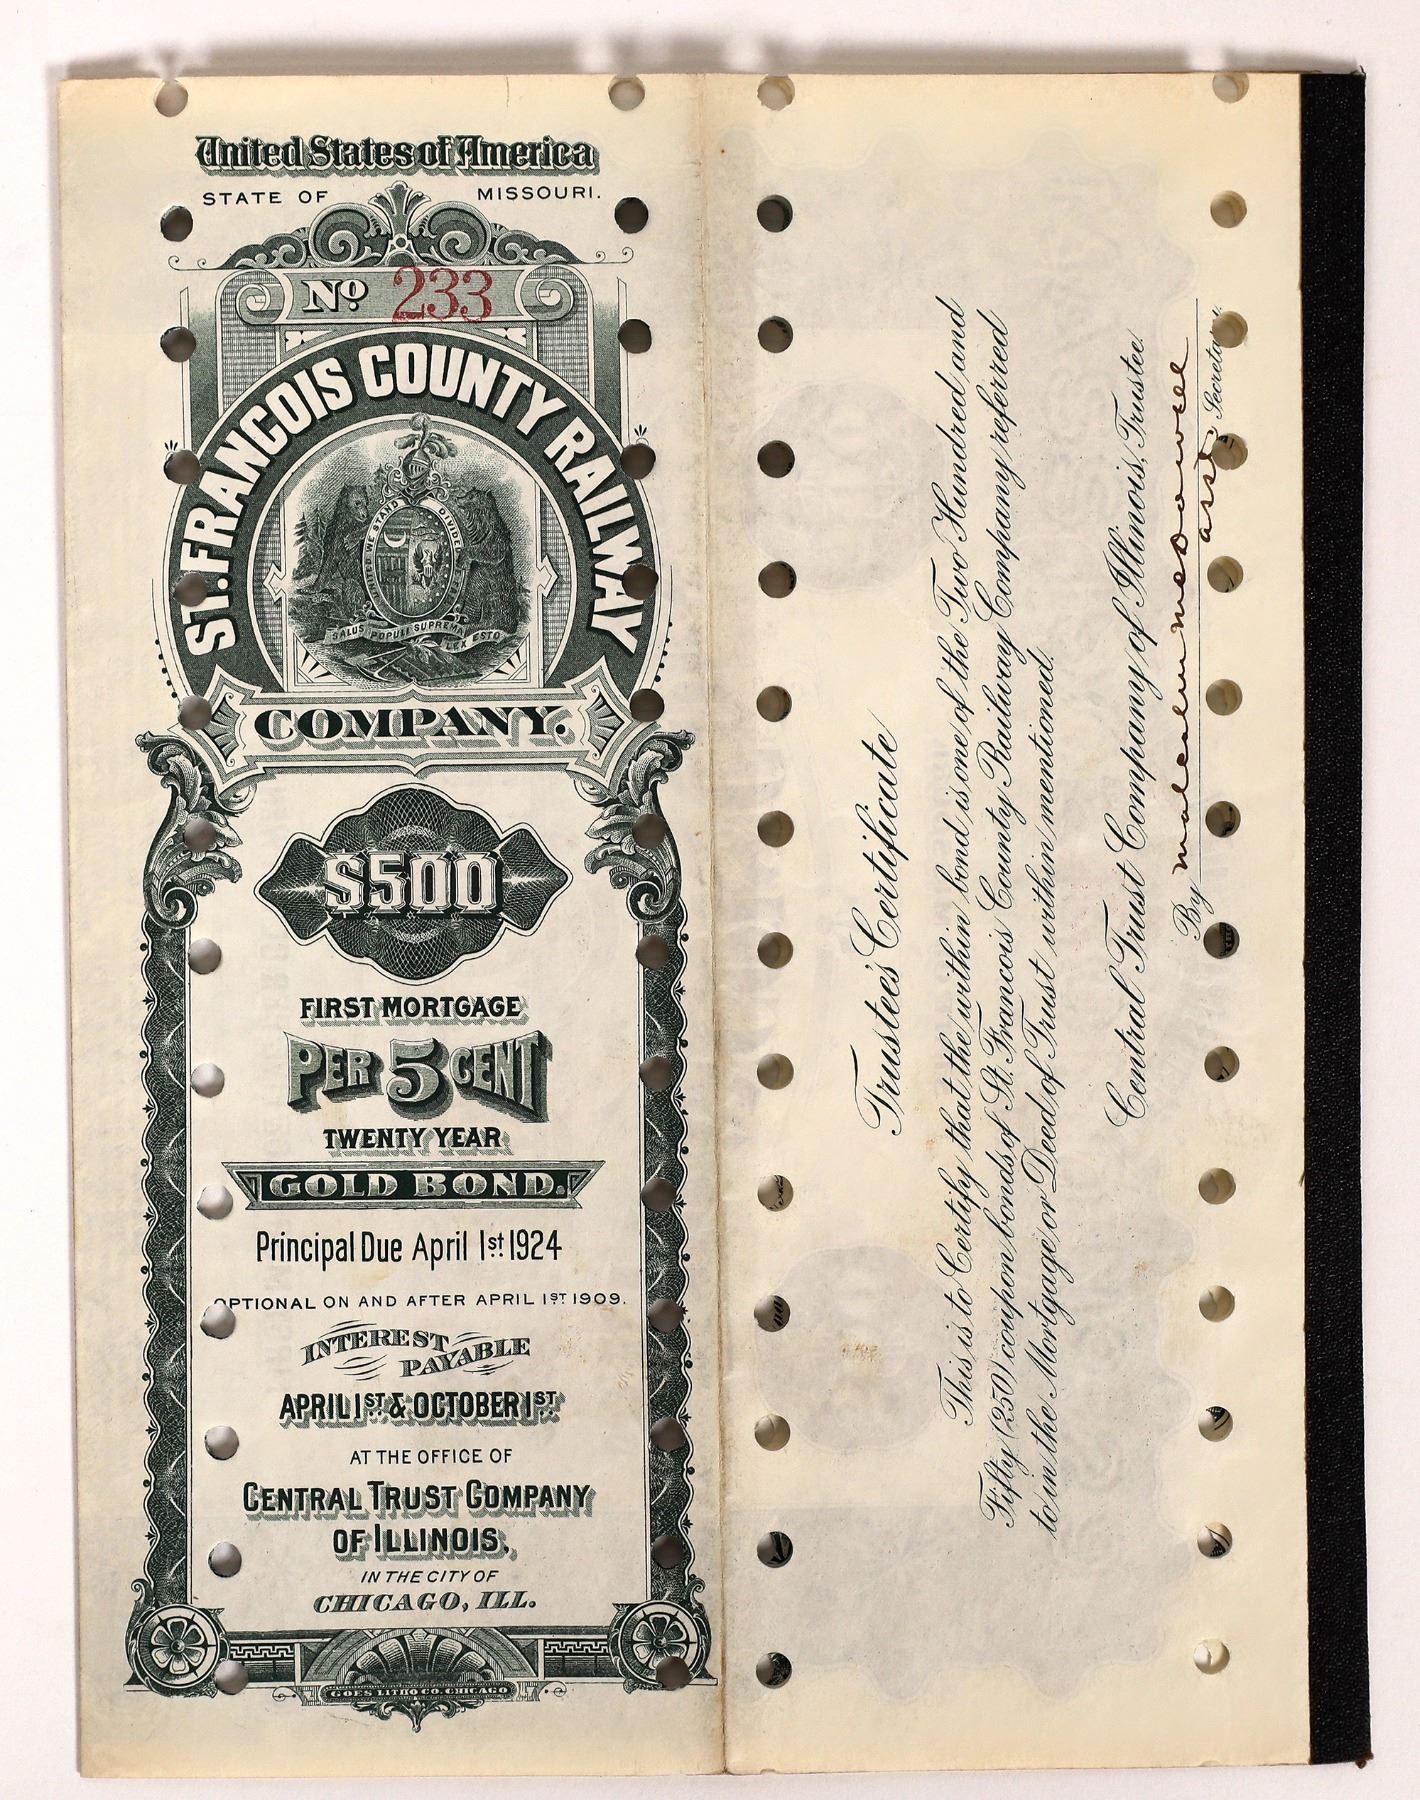 United States of America
STATE OF MISSOURI.
No 233
ST. FRANCOIS COUNTY RAILWAY
UNITED WE STAND DIVIDED
SALUS POPULI SUPREMA LEX ESTO
COMPANY.
$500
FIRST MORTGAGE
PER 5 CENT
TWENTY YEAR
GOLD BOND.
Principal Due April 1st 1924
OPTIONAL ON AND AFTER APRIL 1ST 1909.
INTEREST
PAYABLE
APRIL 1ST & OCTOBER 1ST
AT THE OFFICE OF
CENTRAL TRUST COMPANY
OF ILLINOIS,
IN THE CITY OF
CHICAGO, ILL.
GOES LITHO CO. CHICAGO
Trustee's Certificate
This is to Certify that the within bond is one of the Two Hundred and
Fifty (250) coupon bonds of St. Francois County Railway Company referred
to in the Mortgage or Deed of Trust within mentioned.
Central Trust Company of Illinois, Trustee.
By Malcolm McDowell
Asst Secretary.